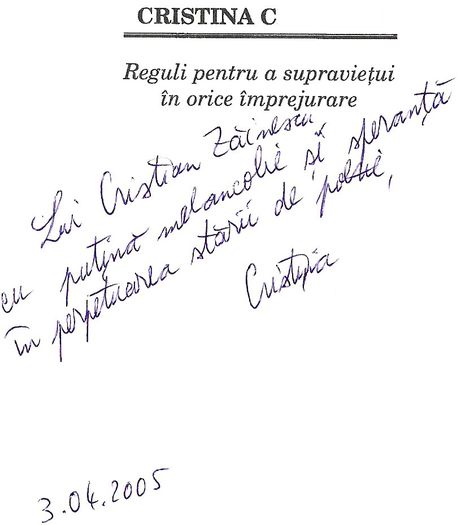 CRISTINA C
Reguli pentru a supraviețui
în orice împrejurare
Lui Cristian Zăinescu
cu puțină melancolie și speranță
în perpetuarea stării de poezie,
Cristina
3.04.2005